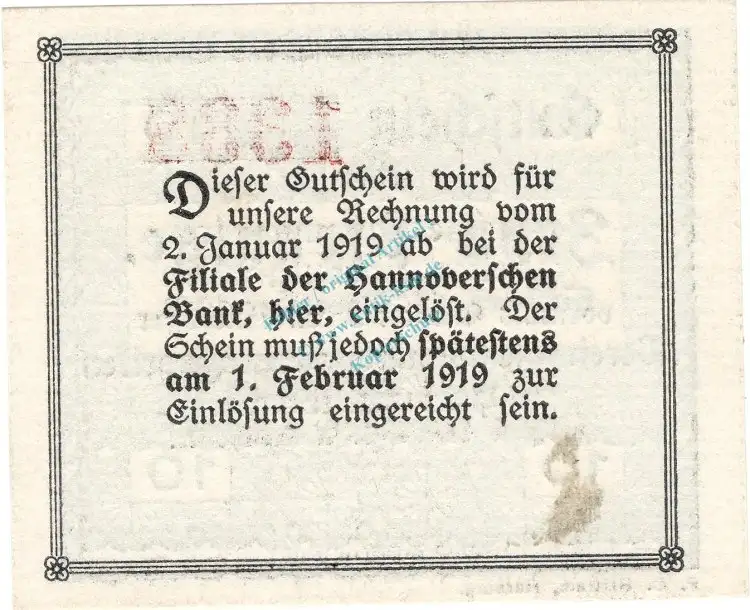 Dieser Gutschein wird für
unsere Rechnung vom
2. Januar 1919 ab bei der
Filiale der Hannoverschen
Bank, hier, eingelöst. Der
Schein muß jedoch spätestens
am 1. Februar 1919 zur
Einlösung eingereicht sein.